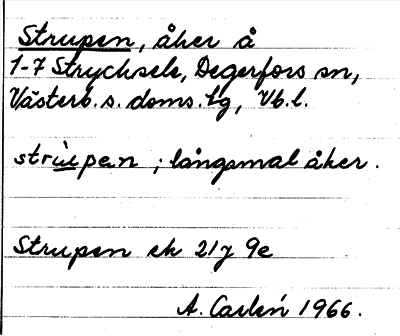 Strupen, åker å
1-7 Strycksele, Degerfors sn,
Västerb. s. doms. lg, Vb. l.
strùpen ; långsmal åker.
Strupen ek 21J 9e
A. Carlén 1966.